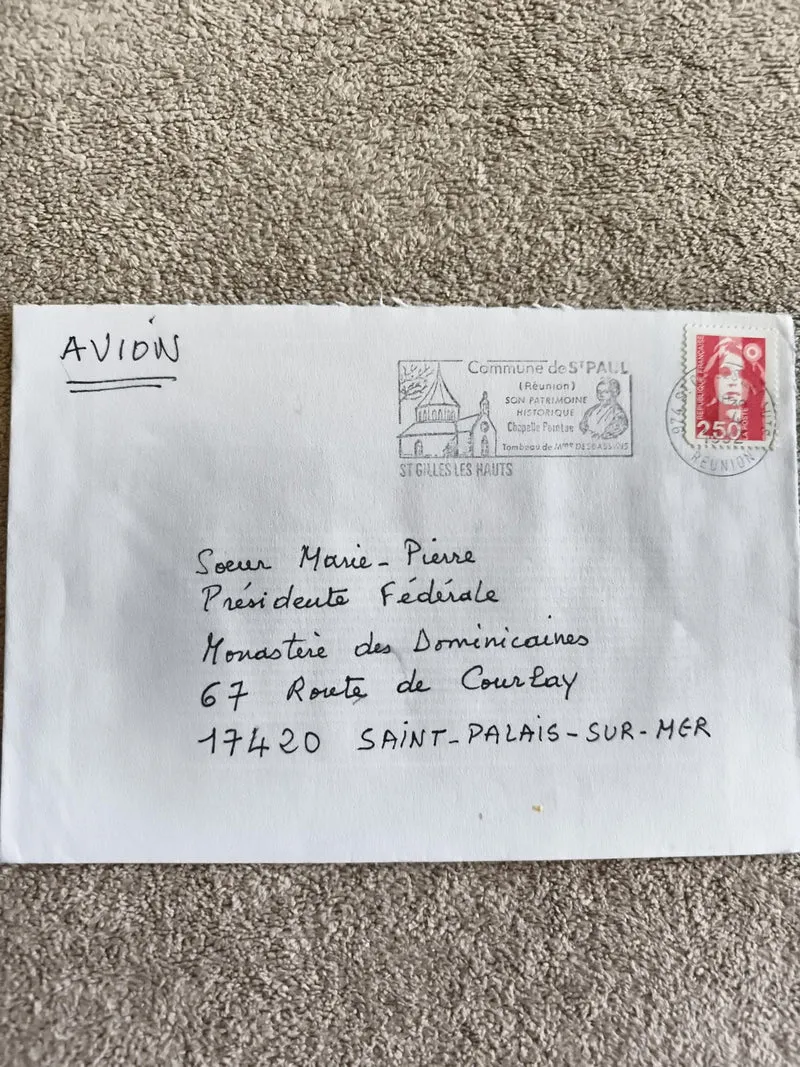 AVION
Commune de ST PAUL
(Réunion)
SON PATRIMOINE
HISTORIQUE
Chapelle Pointue
Tombeau de Mme DESBASSYNS
ST GILLES LES HAUTS
REPUBLIQUE FRANÇAISE
2,50
LA POSTE
974 ST
1992
REUNION
Soeur Marie-Pierre
Présidente Fédérale
Monastère des Dominicaines
67 Route de Courlay
17420 SAINT-PALAIS-SUR-MER